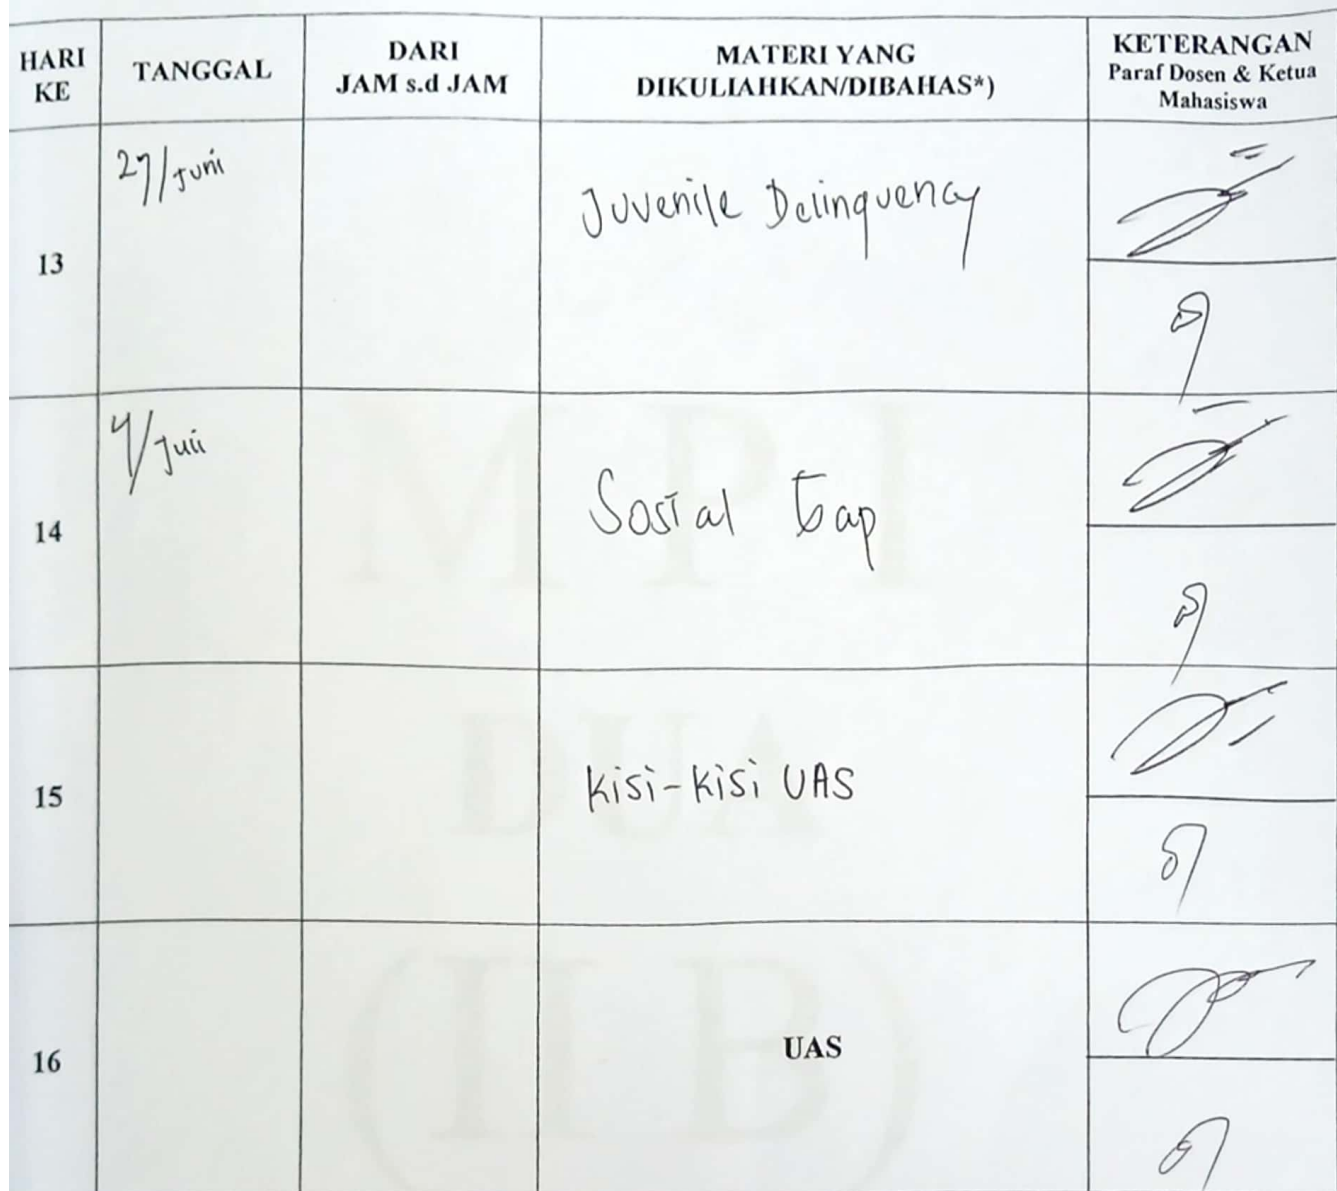 HARI KE
TANGGAL
DARI
JAM s.d JAM
MATERI YANG
DIKULIAHKAN/DIBAHAS*)
KETERANGAN
Paraf Dosen & Ketua
Mahasiswa
13
27/Juni
Juvenile Delinquency
14
4/Juli
Sosial Gap
15
Kisi-kisi UAS
16
UAS
M P I
DUA
(II B)